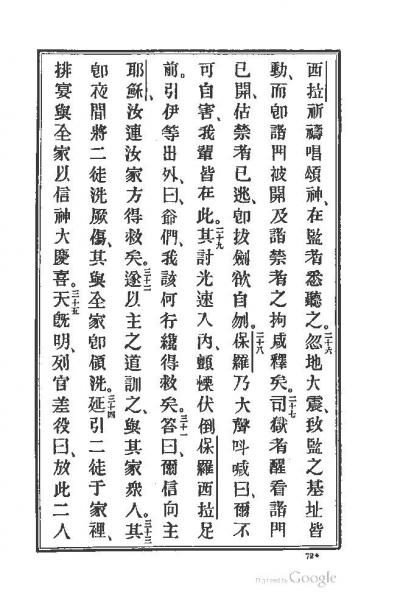 西拉祈禱唱頌神、在監者悉聽之。二十六忽地大震、致監之基址皆
動、而卽諸門被開、及諸禁者之拘咸釋矣。二十七司獄者醒、看諸門
已開、估禁者已逃、卽拔劍欲自刎。二十八保羅乃大聲呌喊曰、爾不
可自害、我輩皆在此。二十九其討光速入內、顫慄伏倒保羅西拉足
前。引伊等出外曰、爺們、我該何行纔得救矣。三十一答曰、爾信向主
耶穌、汝連汝家方得救矣。三十二遂以主之道訓之、與其家衆人。三十三其
卽夜間將二徒洗厥傷、其與全家卽領洗。三十四延引二徒于家裡、
排宴與全家以信神大慶喜。三十五天旣明、列官差役曰、放此二人
72*
Digitized by Google